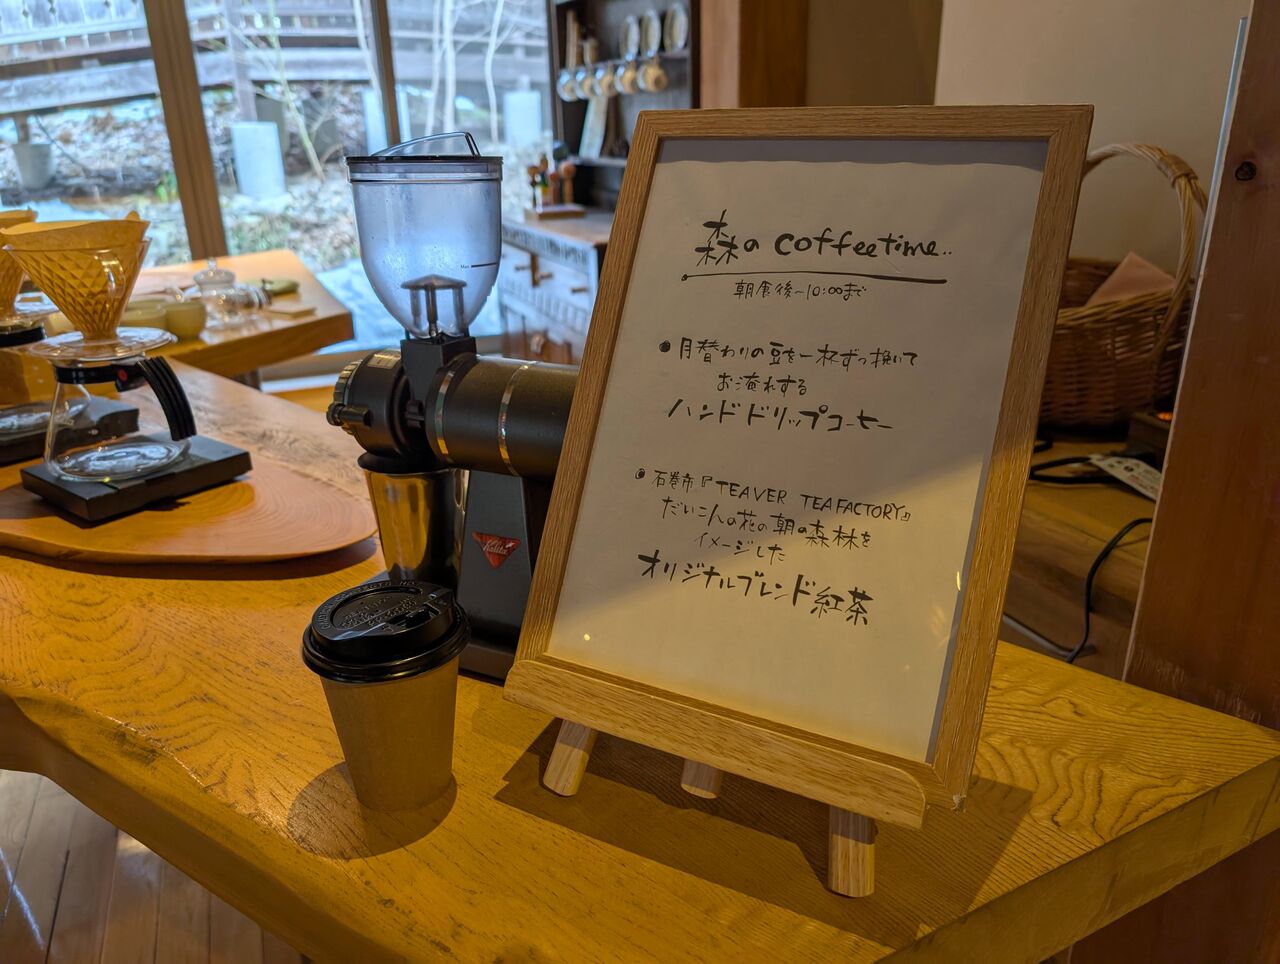 森の coffeetime..
朝食後~10:00まで
●月替わりの豆を一杯ずつ挽いて
お淹れする
ハンドドリップコーヒー
●石巻市『TEAVER TEAFACTORY』
だいこんの花の朝の森林を
イメージした
オリジナルブレンド紅茶
Kalita
Max